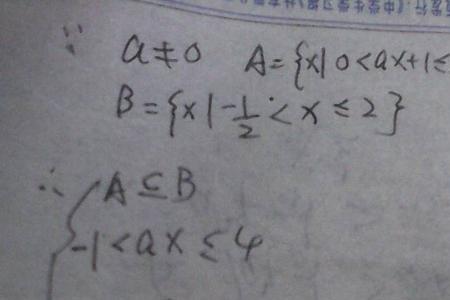 ∵ a≠0 A={x|0<ax+1≤
B={x|-1/2<x≤2}
∴ A⊆B
-1<ax≤4